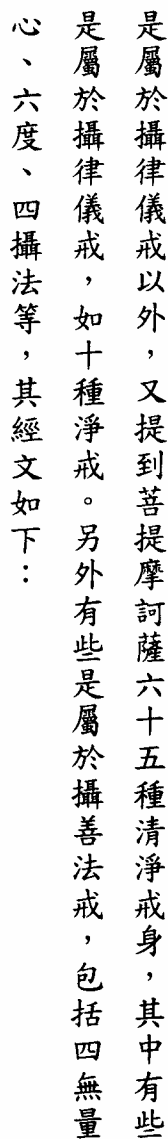 是屬於攝律儀戒以外，又提到菩提摩訶薩六十五種清淨戒身，其中有些
是屬於攝律儀戒，如十種淨戒。另外有些是屬於攝善法戒，包括四無量
心、六度、四攝法等，其經文如下：